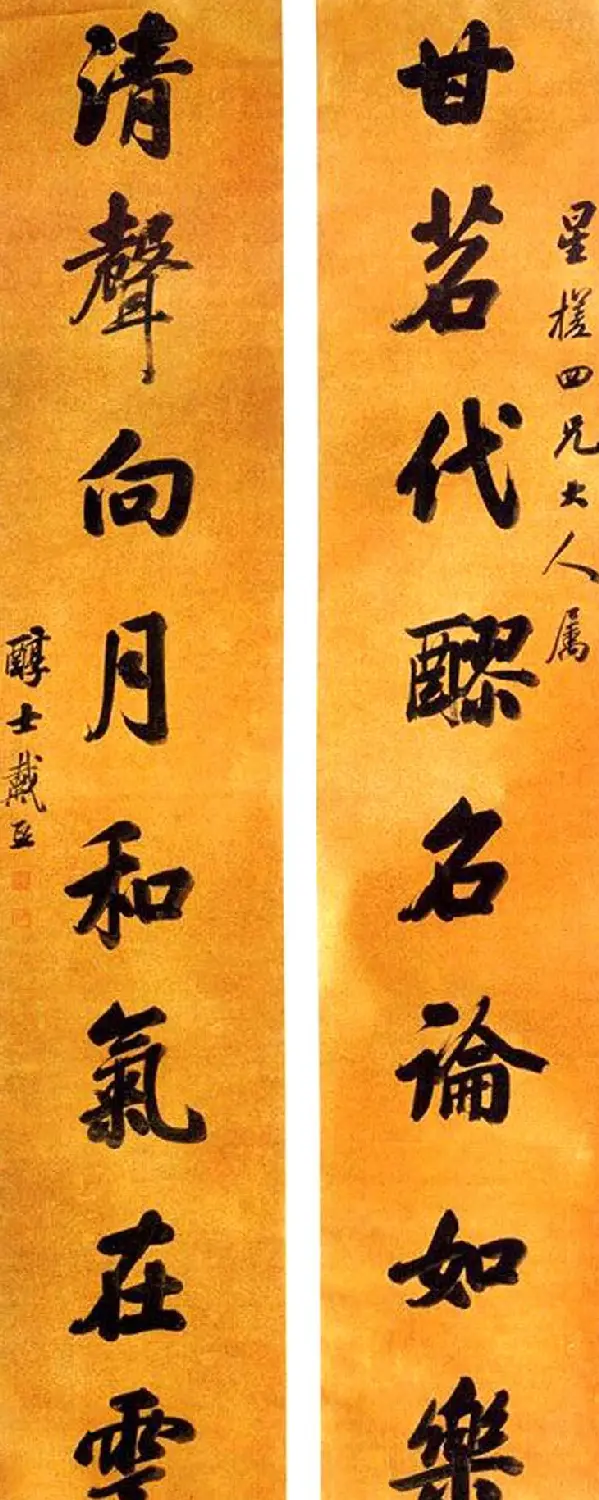 星槎四兄大人属
甘茗代醪名論如樂
清聲向月和氣在雲
醇士戴熙